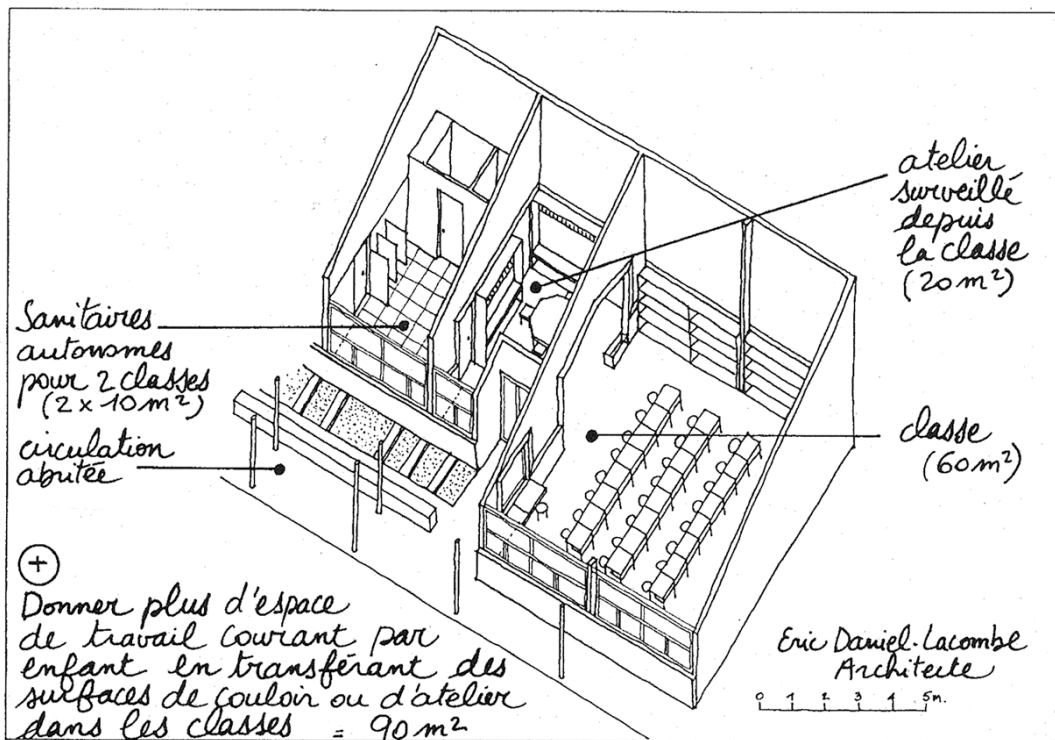 atelier
surveillé
depuis
la classe
(20 m²)
Sanitaires
autonomes
pour 2 classes
(2 x 10 m²)
circulation
abritée
classe
(60 m²)
+
Donner plus d'espace
de travail courant par
enfant en transférant des
surfaces de couloir ou d'atelier
dans les classes = 90 m²
Eric Daniel-Lacombe
Architecte
0 1 2 3 4 5m.